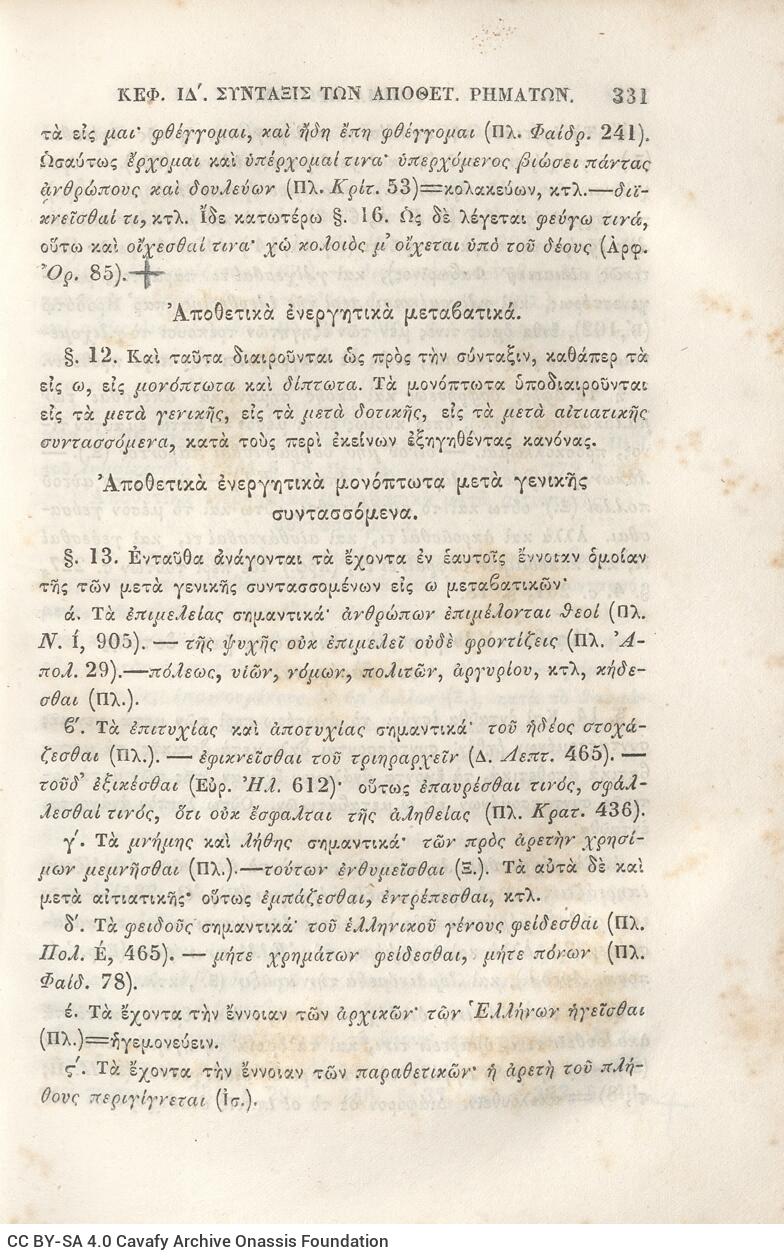 ΚΕΦ. ΙΔʹ. ΣΥΝΤΑΞΙΣ ΤΩΝ ΑΠΟΘΕΤ. ΡΗΜΑΤΩΝ. 331
τὰ εἰς μαι· φθέγγομαι, καὶ ἤδη ἔπη φθέγγομαι (Πλ. Φαίδρ. 241).
Ὡσαύτως ἔρχομαι καὶ ὑπέρχομαί τινα· ὑπερχόμενος βιώσει πάντας
ἀνθρώπους καὶ δουλεύων (Πλ. Κρίτ. 53)=κολακεύων, κτλ.—διϊ-
κνεῖσθαί τι, κτλ. Ἴδε κατωτέρω §. 16. Ὡς δὲ λέγεται φεύγω τινά,
οὕτω καὶ οἴχεσθαί τινα· χὠ κολοιὸς μ' οἴχεται ὑπὸ τοῦ δέους (Ἀρφ.
Ὄρ. 85).
Ἀποθετικὰ ἐνεργητικὰ μεταβατικά.
§. 12. Καὶ ταῦτα διαιροῦνται ὡς πρὸς τὴν σύνταξιν, καθάπερ τὰ
εἰς ω, εἰς μονόπτωτα καὶ δίπτωτα. Τὰ μονόπτωτα ὑποδιαιροῦνται
εἰς τὰ μετὰ γενικῆς, εἰς τὰ μετὰ δοτικῆς, εἰς τὰ μετὰ αἰτιατικῆς
συντασσόμενα, κατὰ τοὺς περὶ ἐκείνων ἐξηγηθέντας κανόνας.
Ἀποθετικὰ ἐνεργητικὰ μονόπτωτα μετὰ γενικῆς
συντασσόμενα.
§. 13. Ἐνταῦθα ἀνάγονται τὰ ἔχοντα ἐν ἑαυτοῖς ἔννοιαν ὁμοίαν
τῆς τῶν μετὰ γενικῆς συντασσομένων εἰς ω μεταβατικῶν·
ά. Τὰ ἐπιμελείας σημαντικά· ἀνθρώπων ἐπιμέλονται θεοί (Πλ.
Ν. ί, 905). — τῆς ψυχῆς οὐκ ἐπιμελεῖ οὐδὲ φροντίζεις (Πλ. Ἀ-
πολ. 29).—πόλεως, υἱῶν, νόμων, πολιτῶν, ἀργυρίου, κτλ, κήδε-
σθαι (Πλ.).
ϐʹ. Τὰ ἐπιτυχίας καὶ ἀποτυχίας σημαντικά· τοῦ ἡδέος στοχά-
ζεσθαι (Πλ.). — ἐφικνεῖσθαι τοῦ τριηραρχεῖν (Δ. Λεπτ. 465). —
τοῦδ' ἐξικέσθαι (Εὐρ. Ἠλ. 612)· οὕτως ἐπαυρέσθαι τινός, σφάλ-
λεσθαί τινός, ὅτι οὐκ ἔσφαλται τῆς ἀληθείας (Πλ. Κρατ. 436).
γʹ. Τὰ μνήμης καὶ λήθης σημαντικά· τῶν πρὸς ἀρετὴν χρησί-
μων μεμνῆσθαι (Πλ.).—τούτων ἐνθυμεῖσθαι (Ξ.). Τὰ αὐτὰ δὲ καὶ
μετὰ αἰτιατικῆς· οὕτως ἐμπάζεσθαι, ἐντρέπεσθαι, κτλ.
δʹ. Τὰ φειδοῦς σημαντικά· τοῦ ἑλληνικοῦ γένους φείδεσθαι (Πλ.
Πολ. Έ, 465). — μήτε χρημάτων φείδεσθαι, μήτε πόνων (Πλ.
Φαίδ. 78).
έ. Τὰ ἔχοντα τὴν ἔννοιαν τῶν ἀρχικῶν· τῶν Ἑλλήνων ἡγεῖσθαι
(Πλ.)=ἡγεμονεύειν.
ϛʹ. Τὰ ἔχοντα τὴν ἔννοιαν τῶν παραθετικῶν· ἡ ἀρετὴ τοῦ πλή-
θους περιγίγνεται (Ἰσ.).
CC BY-SA 4.0 Cavafy Archive Onassis Foundation